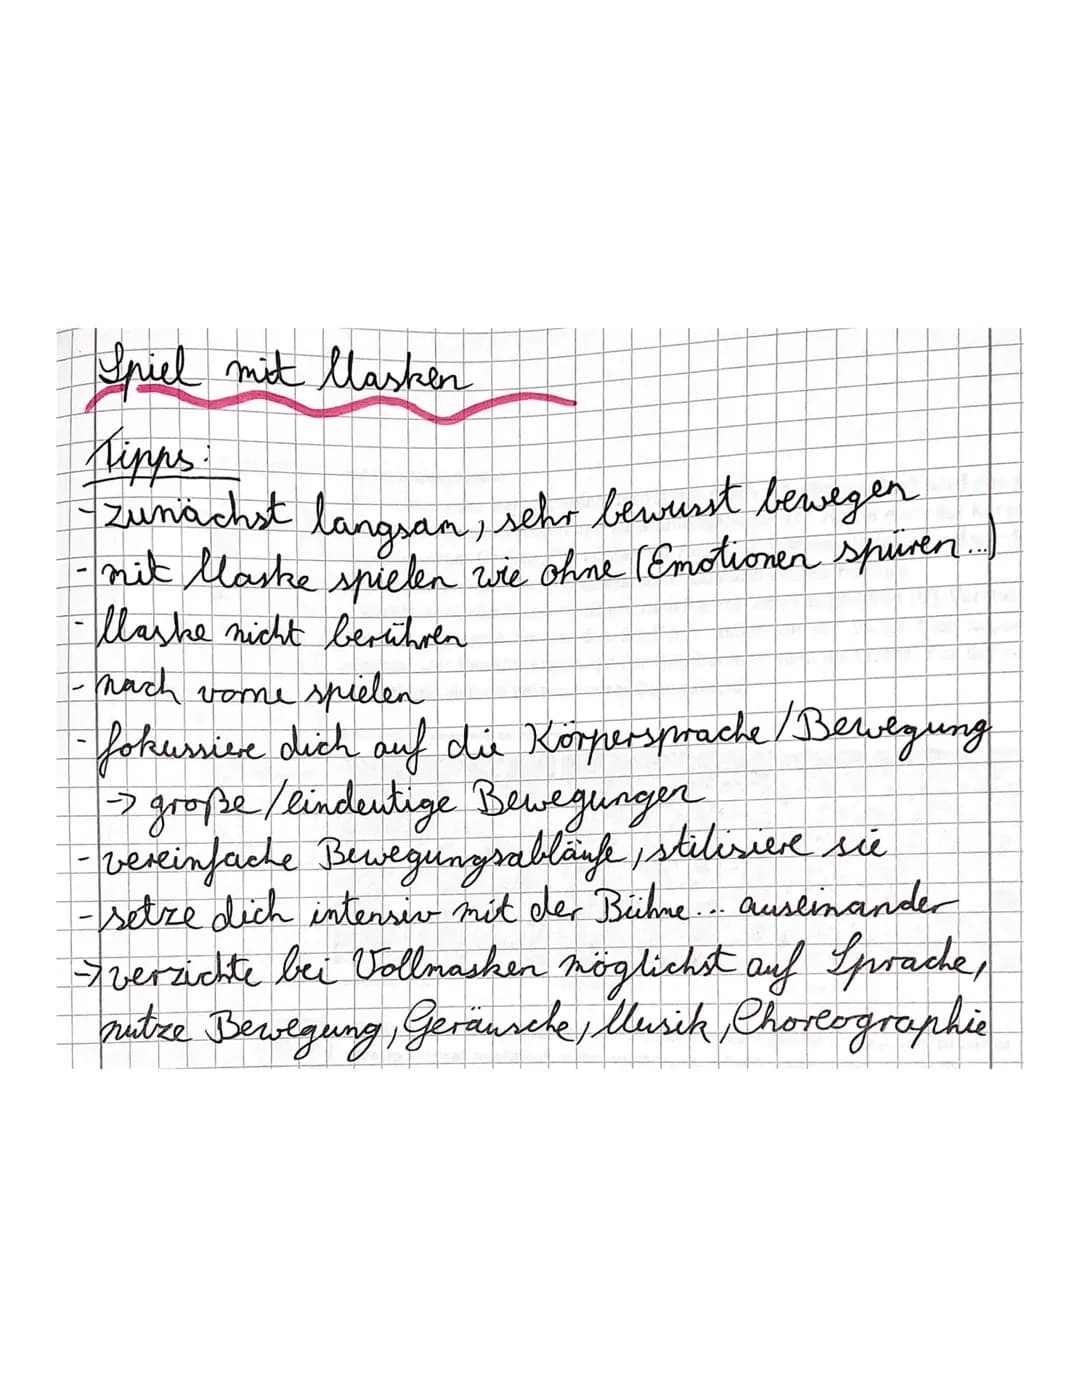 Spiel mit Masken
Tipps:
- zunächst langsam, sehr bewusst bewegen
- mit Maske spielen wie ohne (Emotionen spüren...)
- Maske nicht berühren
- nach vorne spielen
- fokussiere dich auf die Körpersprache/Bewegung
→ große/eindeutige Bewegungen
- vereinfache Bewegungsabläufe, stilisiere sie
- setze dich intensiv mit der Bühne... auseinander
→ verzichte bei Vollmasken möglichst auf Sprache,
nutze Bewegung, Geräusche, Musik, Choreographie